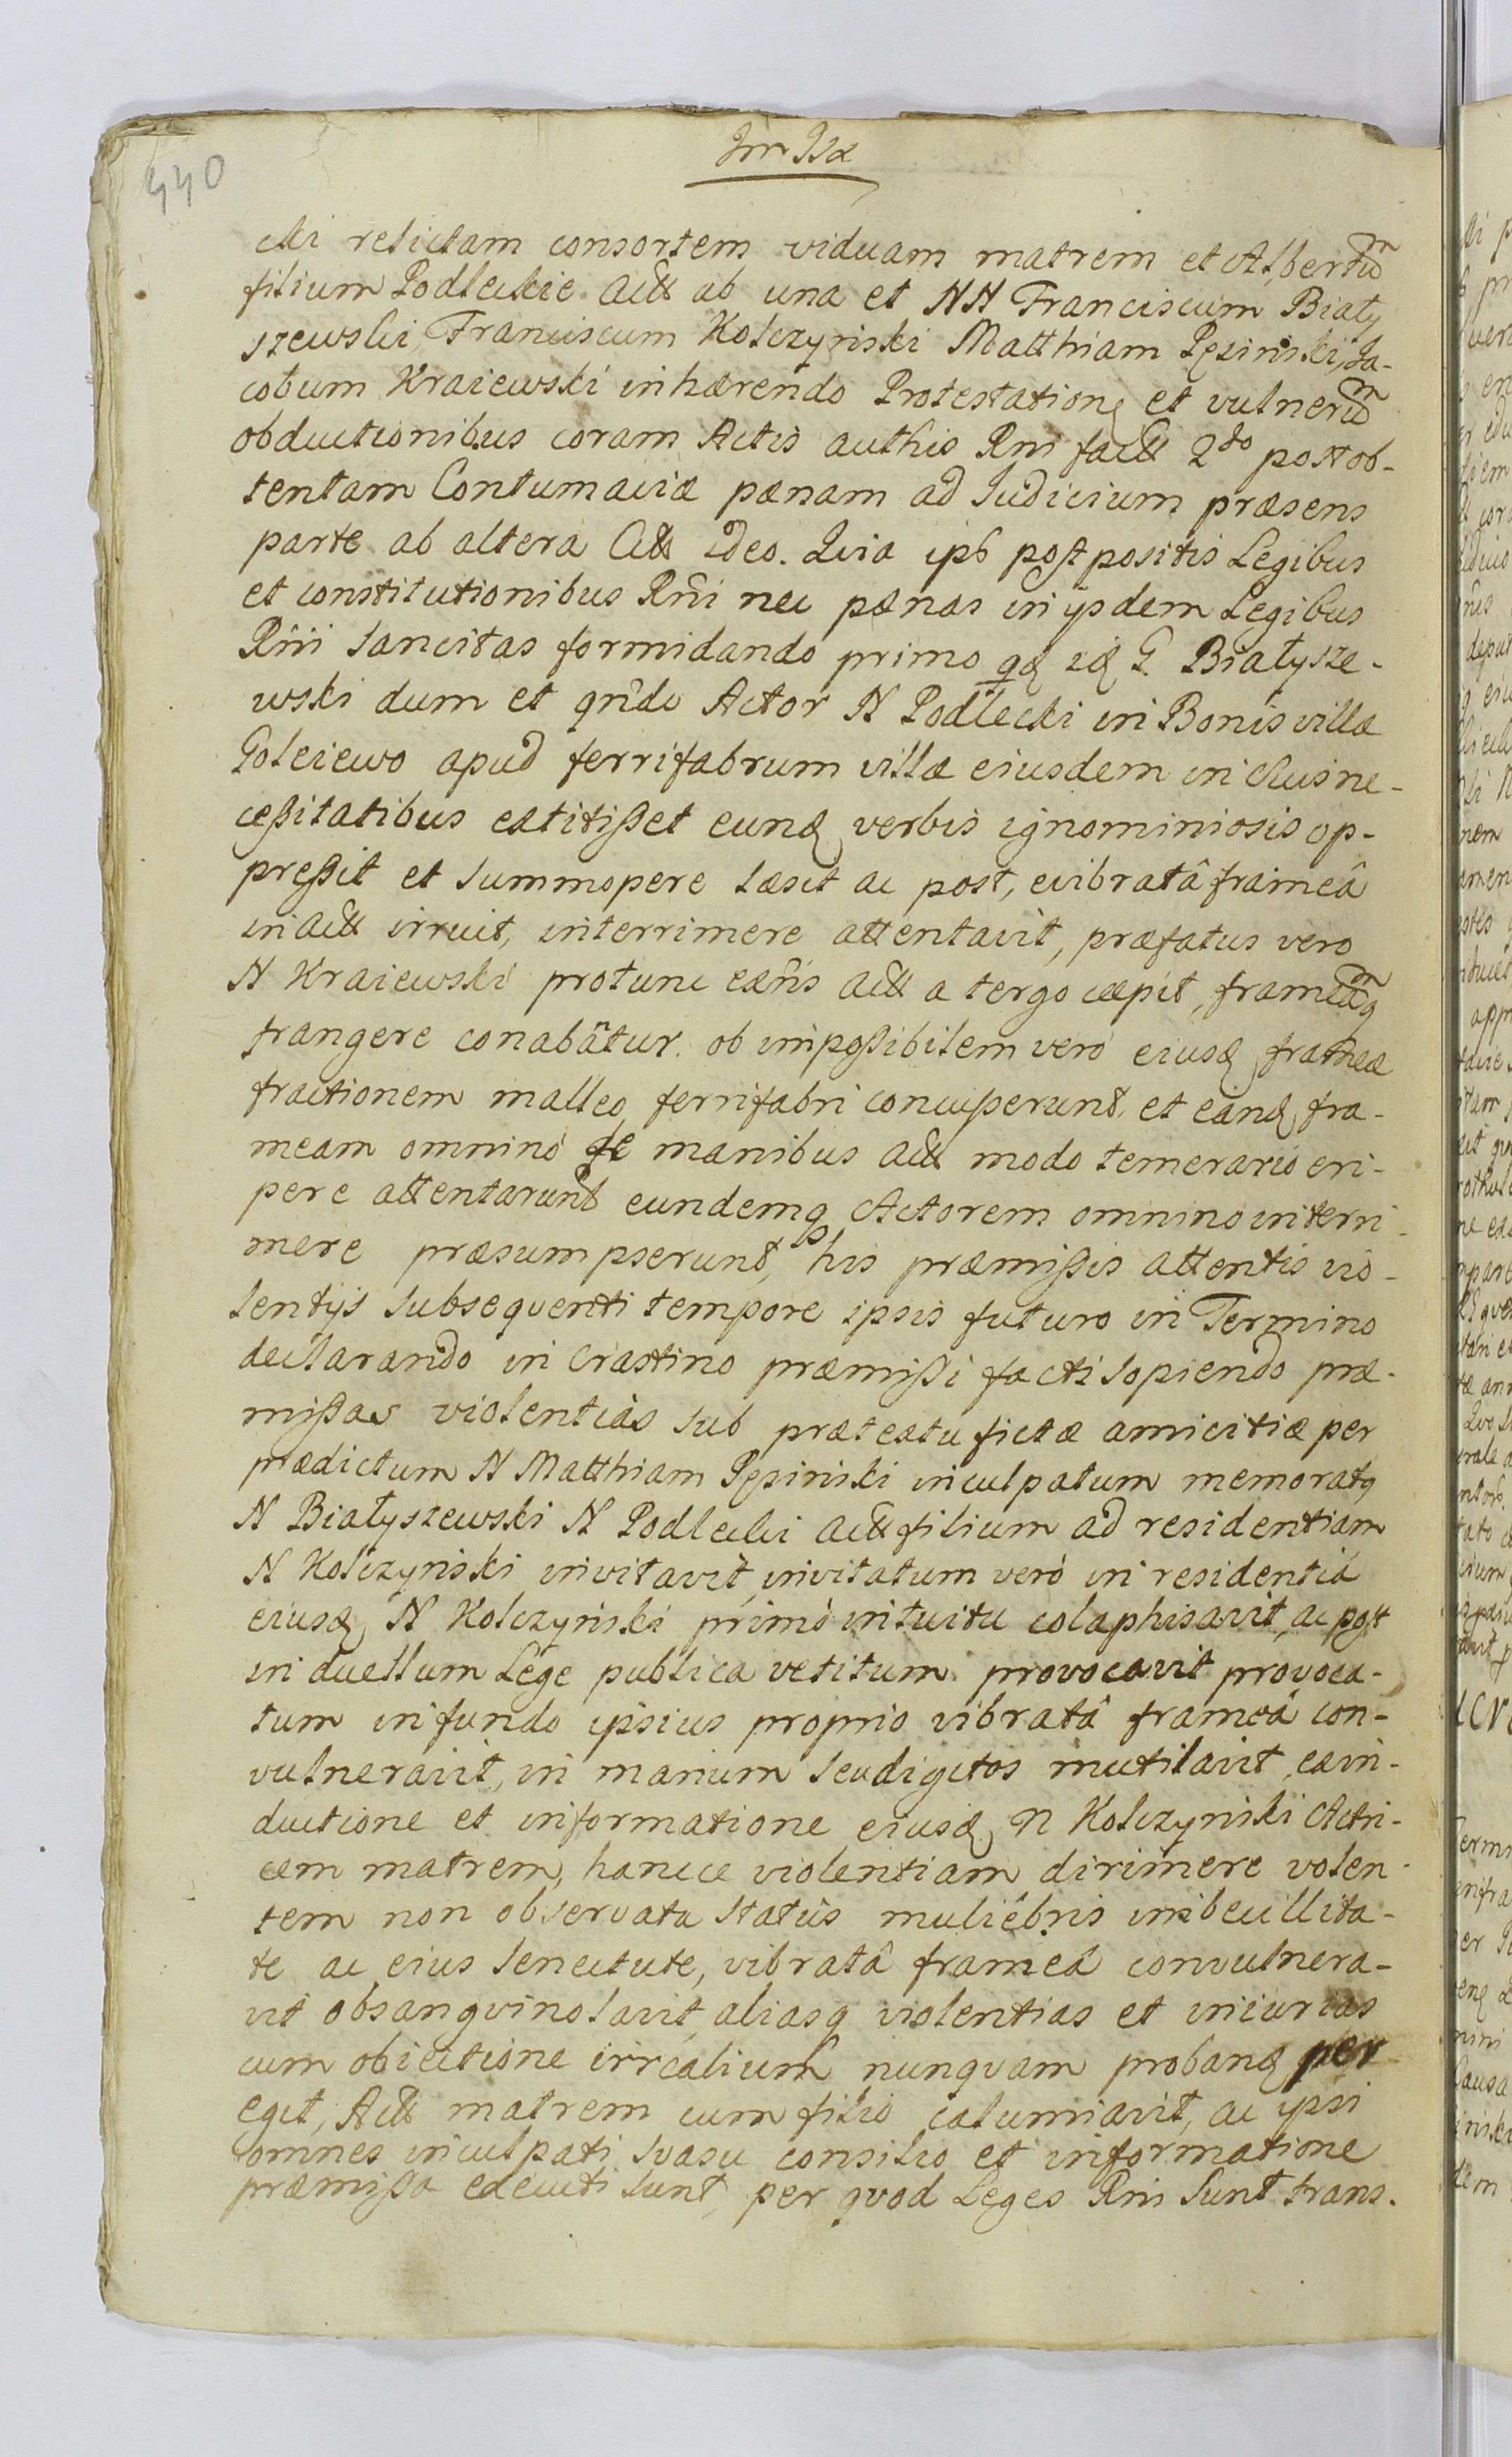 440
cki relictam consortem viduam matrem et Albertũ
filium Podleckie Actt ab una et NN Franciscum Biały
szewski, Franciscum Kolczynski Matthiam Pęsinski, Ja-
cobum Kraiewski inhærendo Protestationę et vulnerũ
obductionibus coram Actis authis Rni factt 2do post ob-
tentam Contumaciæ pænam ad Iudicium præsens
parte ab altera Citt ideo. Qvia ipß post positis Legibus
et constitutionibus Rñi nec pænas in ÿsdem Legibus
Rñi sancitas formidando primo G Białysze-
wski dum et qñdo Actor N Podlecki in Bonis villæ
Goleiewo apud ferrifabrum villæ eiusdem in suis ne-
ceßitatibus extitißet eunđ verbis ignominiosis op-
preßit et summopere læsit ac post, evibratâ frameâ
in Actt irruit, interrimere attentavit, præfatus vero
N Kraiewski protunc exñs Actt a tergo cæpit, frameãq
frangere conabãtur. ob impoßibilem verò eiusđ frameæ
fractionem malleo ferrifabri concußerunt, et eanđ fra-
meam omninò de manibus Actt modo temerario eri-
pere attentarunt eundemq Actorem omnino interri-
mere præsumpserunt, his præmißis attentis vio-
lentÿs subseqventi tempore ipsis futuro in Termino
declarando in crastino præmißi facti sopiendo præ-
mißas violentias sub prætextu fictæ amicitiæ per
prædictum N Matthiam Pęsinski inculpatum memoratq
N Białyszewski N Podlecki Actt filium ad residentiam
N Kolczynski invitavit, invitatum verò in residentiâ
eiusđ N Kolczynski primò intuitu colaphisavit, ac post
in duellum Lege publica vetitum provocavit provoca-
tum in fundo ipsius proprio vibratâ frameâ con-
vulneravit, in manum seu digitos mutilavit, ex in-
ductione et informatione eiusđ N Kolczynski Actri-
cem matrem, hancce violentiam dirimere volen-
tem non observata statûs muliêbris imbecillita-
te ac eius senectute, vibratâ frameâ convulnera-
vit obsangvinolavit, aliasq violentias et iniurias
cum obiectione irrealium nunqvam probanđ per
egit, Actt matrem cum filio calumniavit, ac ipsi
omnes inculpati svasu consilio et informatione
præmißa executi sunt, per qvod Leges Rni sunt trans-